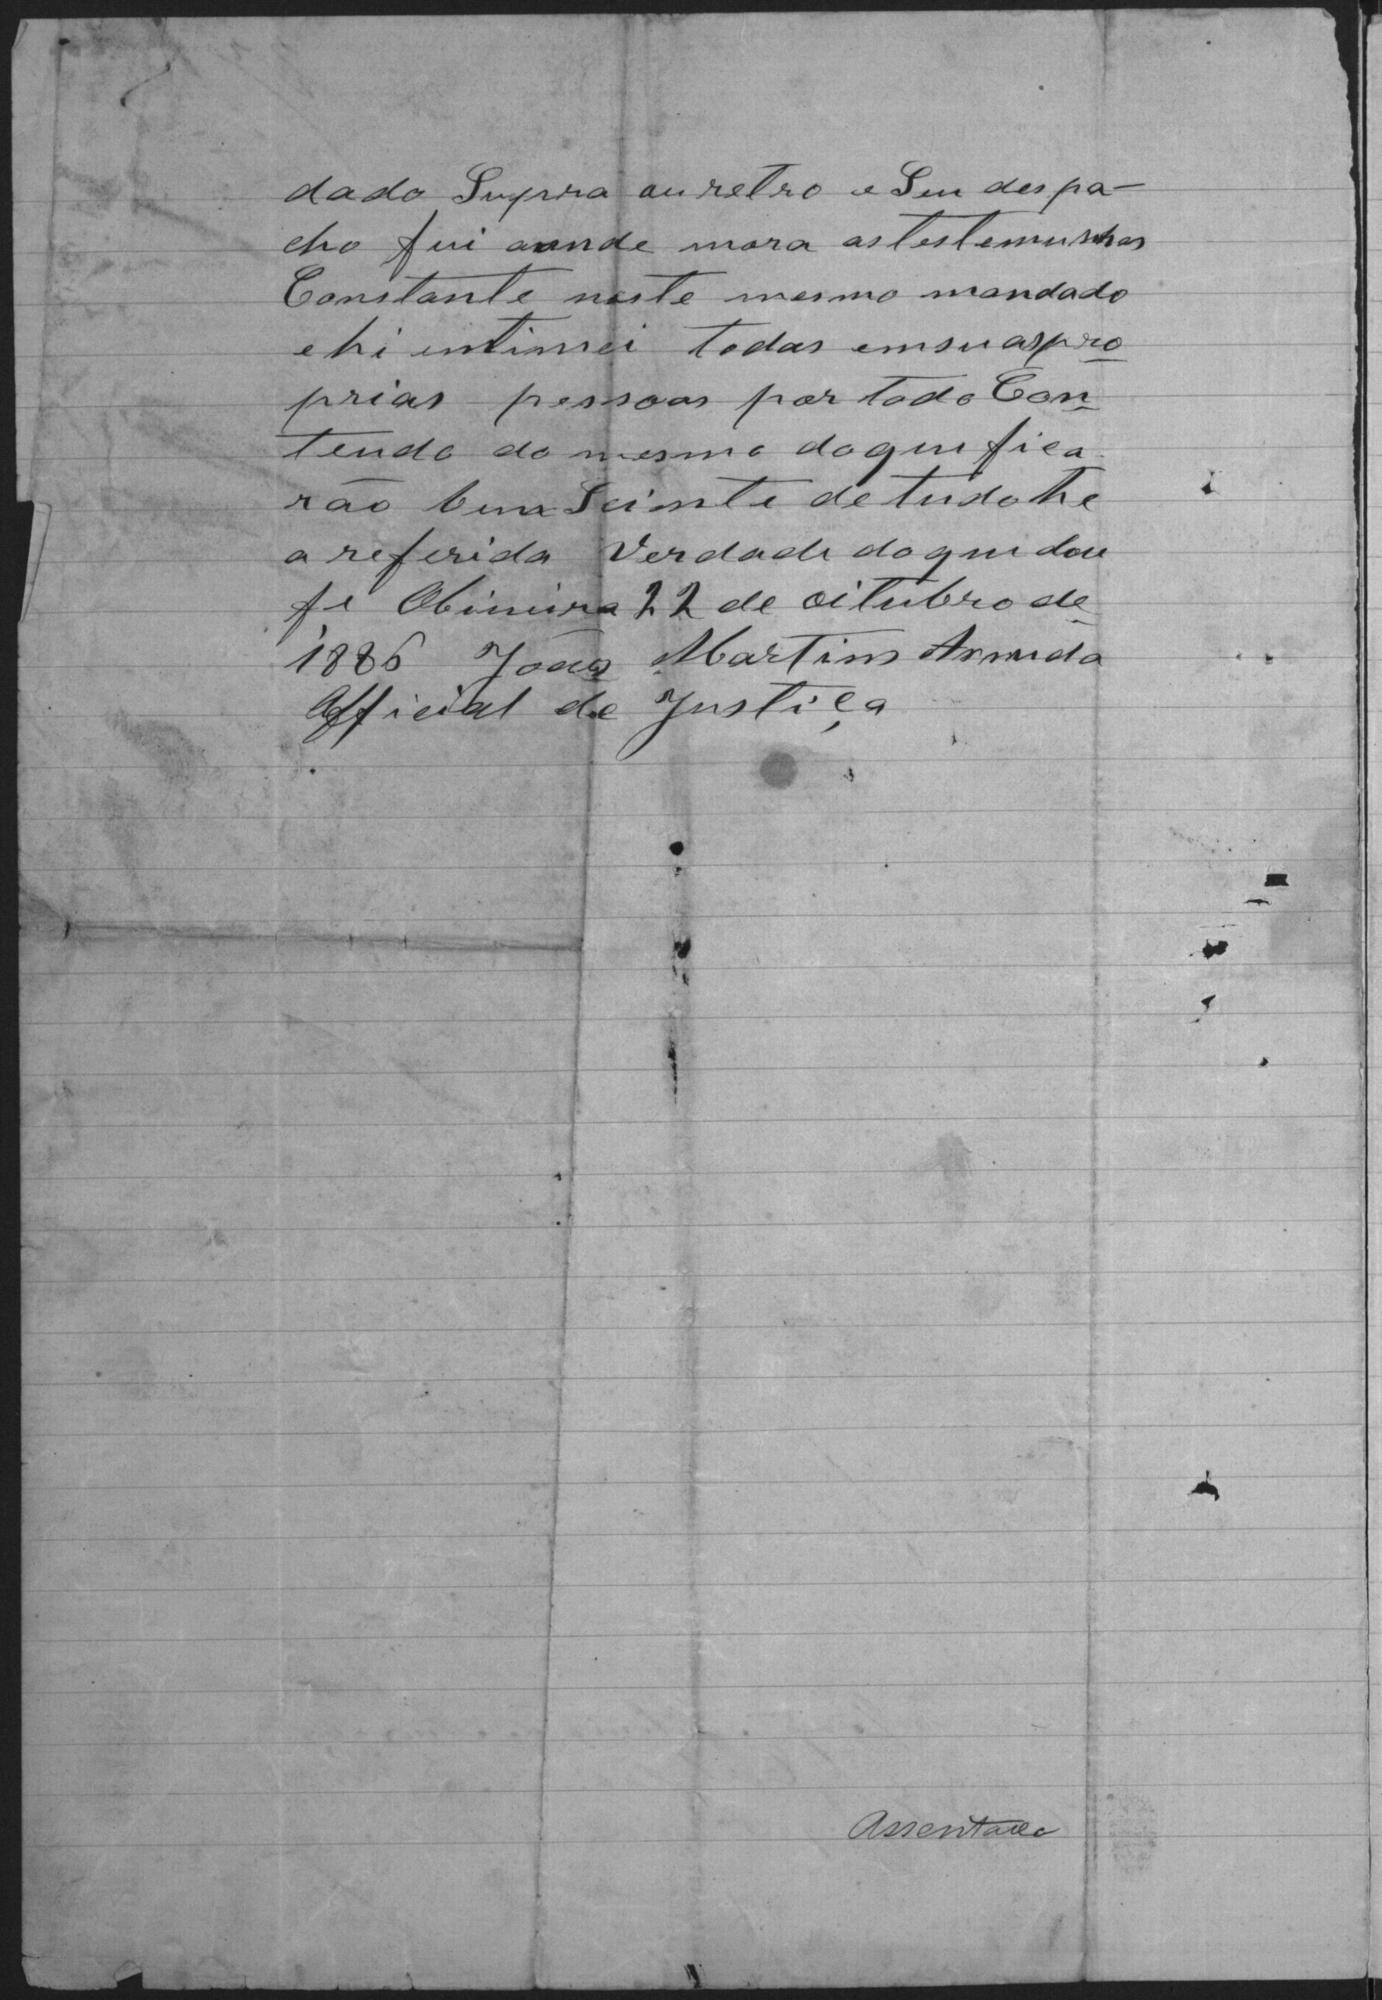 dado Supra ou retro e Seu despa-
cho fui aonde mora as testemunhas
Constante neste mesmo mandado
ehi intimei todas em suas pro
prias pessoas por todo Con
teudo do mesmo do que fica
rão bem Sciente de tudo he
a referida Verdade do que dou
fe 22 de oitubro de
1886 João Martins Arruda
Official de Justiça
Assentado